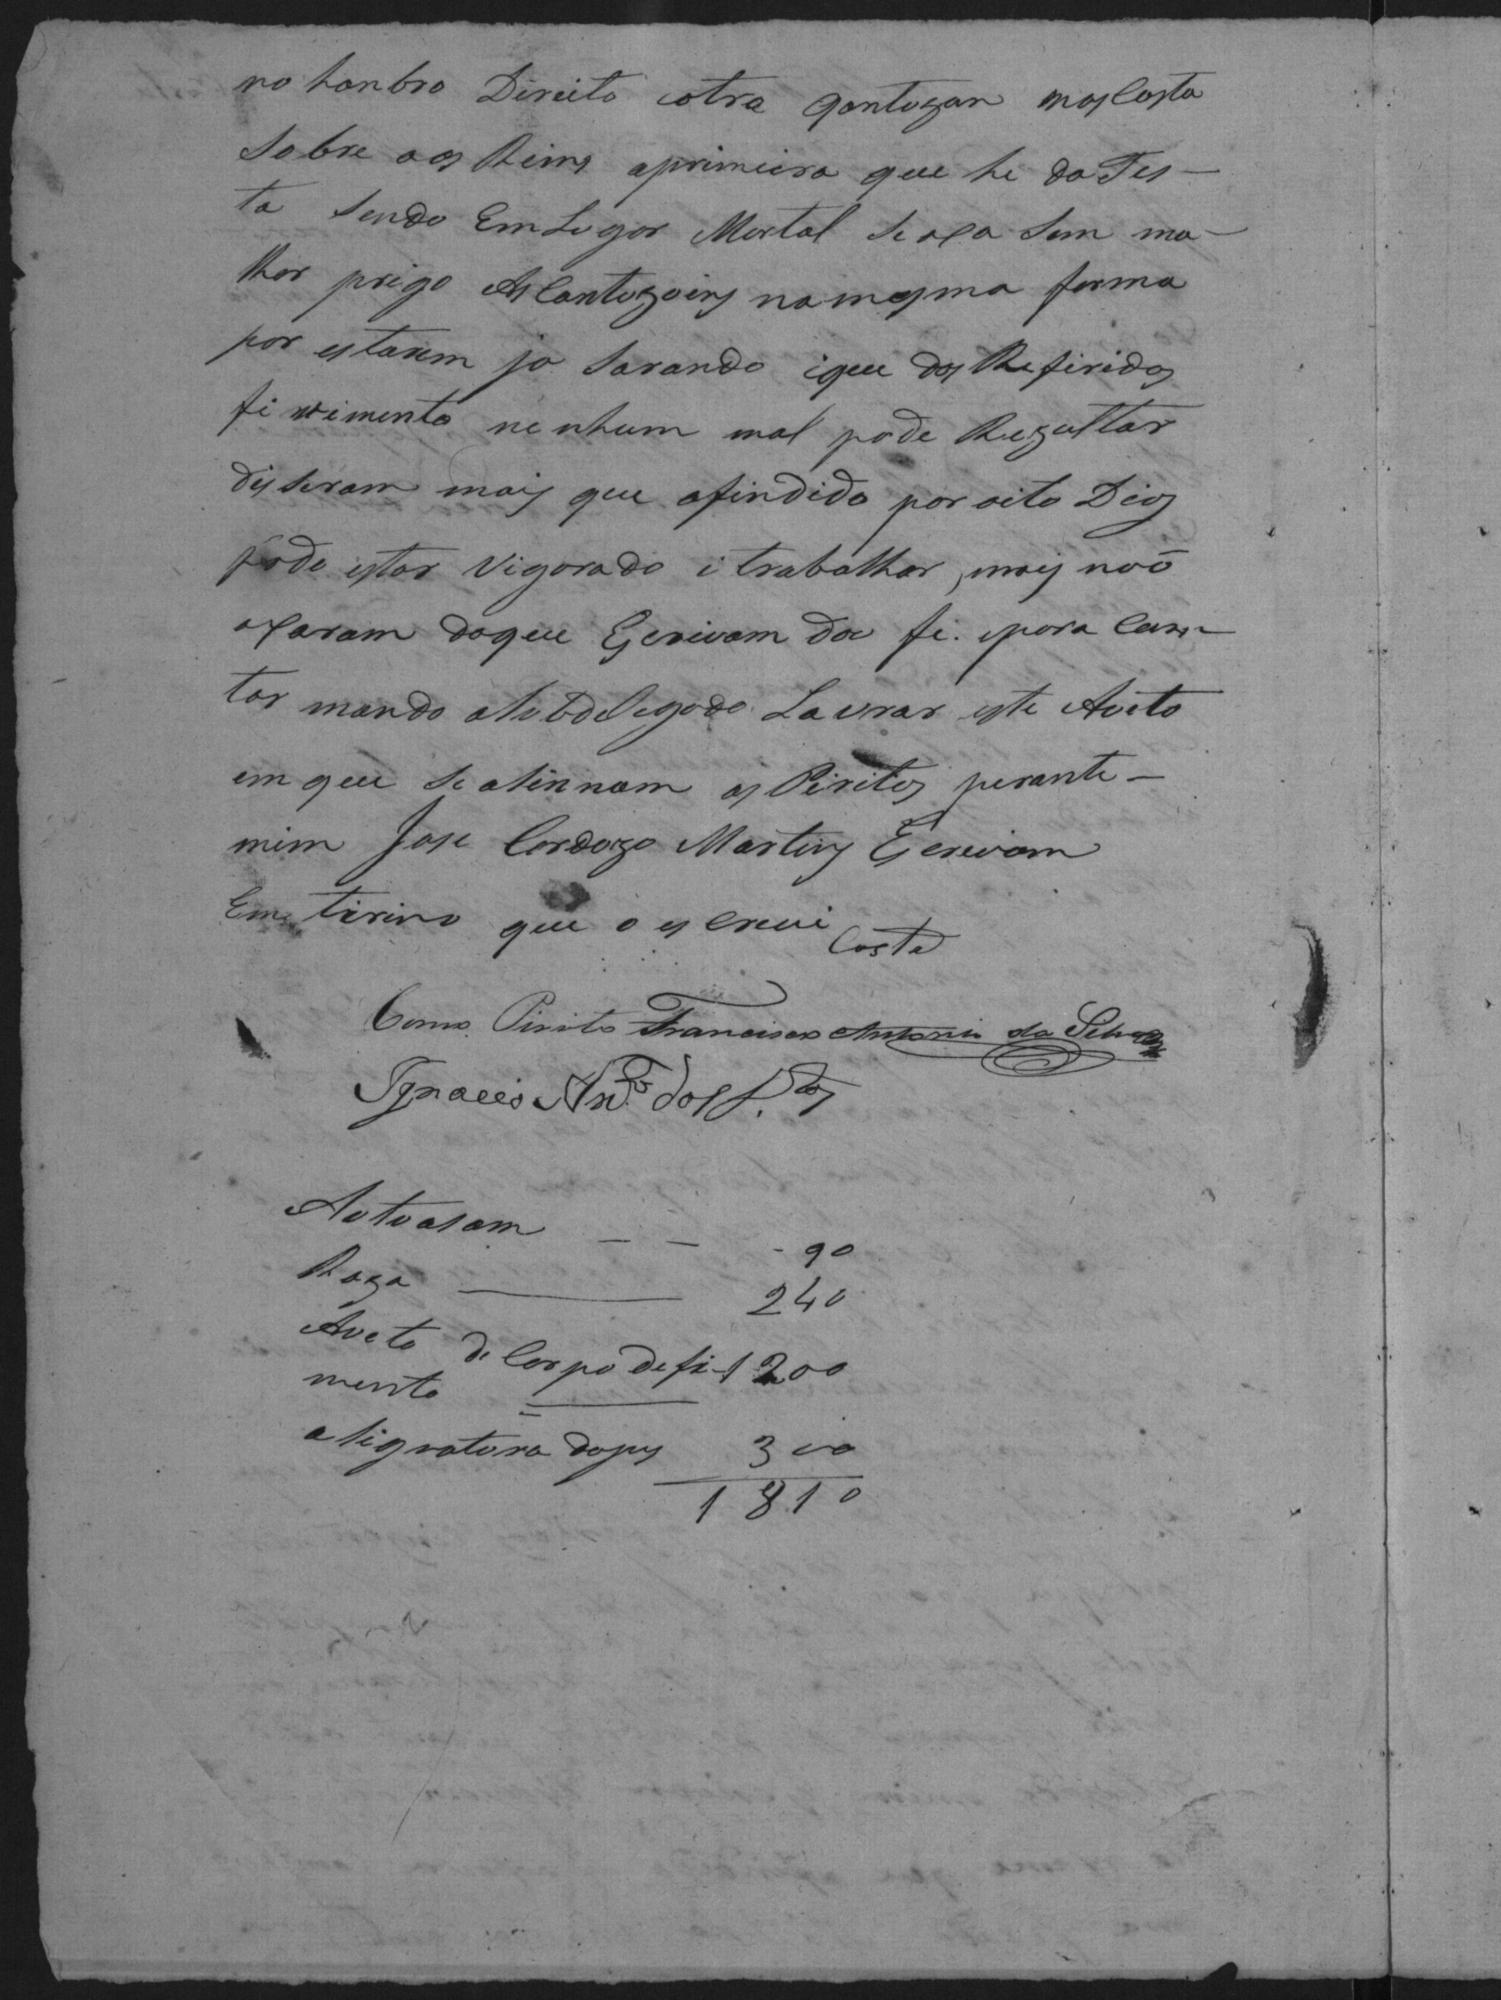 no honbro Direito iotra qontuzan nas Costa
Sobre aos Reins aprimeira que he da Tes-
ta sendo Em Lugar Mortal se axa sem ma-
lhor prigo As Contuzoins na mesma forma
por estarem ja Sarando ique dos Refiridos
firimento nenhum mal pode Rezultar
diseram mais que ofindido por oito Dias
pode estar Vigorado i trabalhar, mais naõ
axaram doque Escrivam dou fi. epara Cons-
tar mando oSubdelegado Lavrar este Aucto
em que se asinnam os Piritos perante-
mim Jose Cardozo Martins Escrivam
Em tirino que o escrevi
Costa
Como Pirito Francisco Antonio da Silva
Ignacio An.to dos S.tos
Autuasam - - - 90
Raza 240
Aucto de Corpo de fi- 1200
mento
asignatura do 300
1810